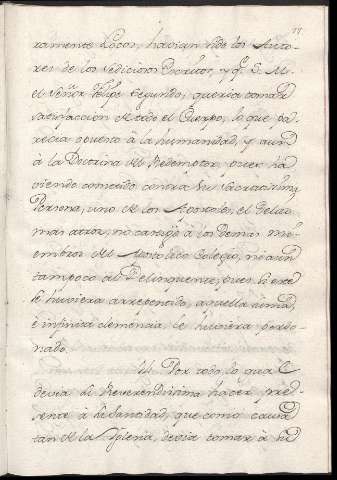 ramente Locos, havian sido los Auto-
res de los sediciosos Escritos, y q.e S. M.
el Señor Felipe Segundo, queria tomar
satisfaccion de todo el Cuerpo, lo que pa-
recia opuesto à la humanidad, y aun
à la Doctrina del Redemptor, pues ha-
viendo cometido contra su sacratissima
Persona, uno de los Apostoles, el delito
mas atroz, no castigò à los demas mi-
embros del Apostolico Colegio, ni aun
tampoco al Delinquente, pues si este
se huviera arrepentido, aquella suma,
è infinita clemencia, le huviera perdo-
nado.
Por todo lo qual
devia su Reverendissima hacer pre-
sente à su Santidad, que como cavia
tan de la Iglesia, devia tomar à su